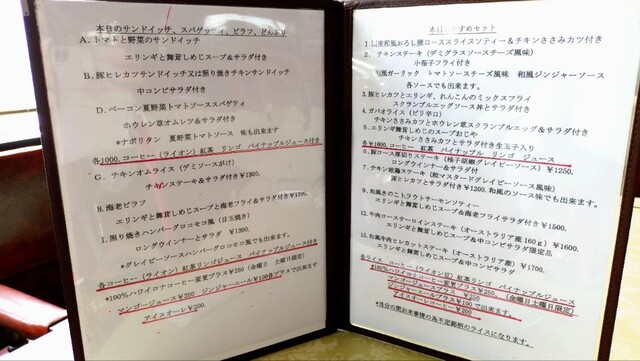 本日のサンドイッチ、スパゲッティ、ピラフ、どんぶり
A. トマトと野菜のサンドイッチ
エリンギと舞茸しめじスープ&サラダ付き
B. 豚ヒレカツサンドイッチ又は照り焼きチキンサンドイッチ
中コンビサラダ付き
D. ベーコン夏野菜トマトソーススパゲティ
ホウレン草オムレツ&サラダ付き
*ナポリタン 夏野菜トマトソース 味も出来ます
各1000. コーヒー(ライオン) 紅茶 リンゴ パイナップルジュース付き
G. チキンオムライス(デミソースがけ)
チキンステーキ&サラダ付き¥1300.
H. 海老ピラフ
エリンギと舞茸しめじスープと海老フライ&サラダ付き¥1300.
I. 照り焼きハンバーグロコモコ風(目玉焼き)
ロングウインナーとサラダ ¥1300.
*グレイビーソースハンバーグロコモコ風でも出来ます。
各コーヒー(ライオン)紅茶リンゴジュース パイナップルジュース付き
*100%ハワイコナコーヒー変更プラス¥250(金曜日 土曜日限定)
マンゴージュース¥250 ジンジャーエール¥100各プラスで出来ます
アイスオーレ¥200.
すめセット
1. 国産和風おろし豚ローススライスソティー&チキンささみカツ付き
2. チキンステーキ(デミグラスソースチーズ風味)
小茄子フライ付き
和風ガーリック トマトソースチーズ風味 和風ジンジャーソース
各ソースでも出来ます。
3. 豚ヒレカツとエリンギ、れんこんのミックスフライ
スクランブルエッグソース丼とサラダ付き
4. ガパオライス(ピリ辛口)
チキンささみカツとホウレン草スクランブルエッグ&サラダ付き
5. エリンギ舞茸しめじのスープおじや
チキンささみカツ&サラダ付き生玉子入り
各¥1000. コーヒー 紅茶 パイナップル リンゴ ジュース
6. 豚ロース厚切りステーキ(柚子胡椒グレイビーソース) ¥1250.
ロングウインナー&サラダ付
7. チキン地鶏ステーキ(粒マスタードグレイビーソース風味)
豚ヒレカツとサラダ付き¥1200. 和風のソース味でも出来ます。
9. 和風きのこトラウトサーモンソティー
エリンギと舞茸しめじスープ&海老フライサラダ付き ¥1500.
12. 牛肉ロースサーロインステーキ(オーストラリア産 160g) ¥1600.
エリンギと舞茸しめじスープ&中コンビサラダ限定品
15. 和風牛肉ヒレカットステーキ(オーストラリア産) ¥1700.
エリンギと舞茸しめじスープ&中コンビサラダ付
各ライス コーヒー(ライオン豆)紅茶リンゴ パイナップルジュース
*100%ハワイコナコーヒー変更プラス¥250.(金曜日土曜日限定)
マンゴージュースプラス¥250.
ジンジャーエールプラス¥100で出来ます。
アイスオーレコーヒー¥200
*当分の間お米